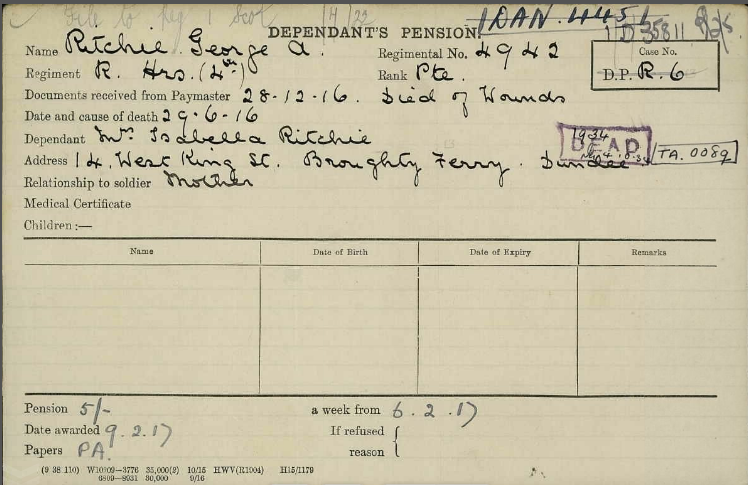 File to Reg 1 Scot 1/4/22
DEPENDANT'S PENSION. 1DAN.4451
1D35811
Name Ritchie George A. Regimental No. 4942
Case No.
Regiment R. Hrs. (4th) Rank Pte. D.P. R.6
Documents received from Paymaster 28-12-16. Died of Wounds
Date and cause of death 29-6-16
Dependant Mrs Isabella Ritchie
1934
DEAD
Address 14, West King St. Broughty Ferry. Dundee TA.0089
Relationship to soldier Mother
Medical Certificate
Children :—
Name Date of Birth Date of Expiry Remarks
Pension 5/- a week from 6.2.17
Date awarded 9.2.17 If refused {
Papers PA. reason
(9 38 110) W10109—3776 35,000(2) 10/15 H.W.V(R1004) H15/1179
6809—8931 30,000 9/16